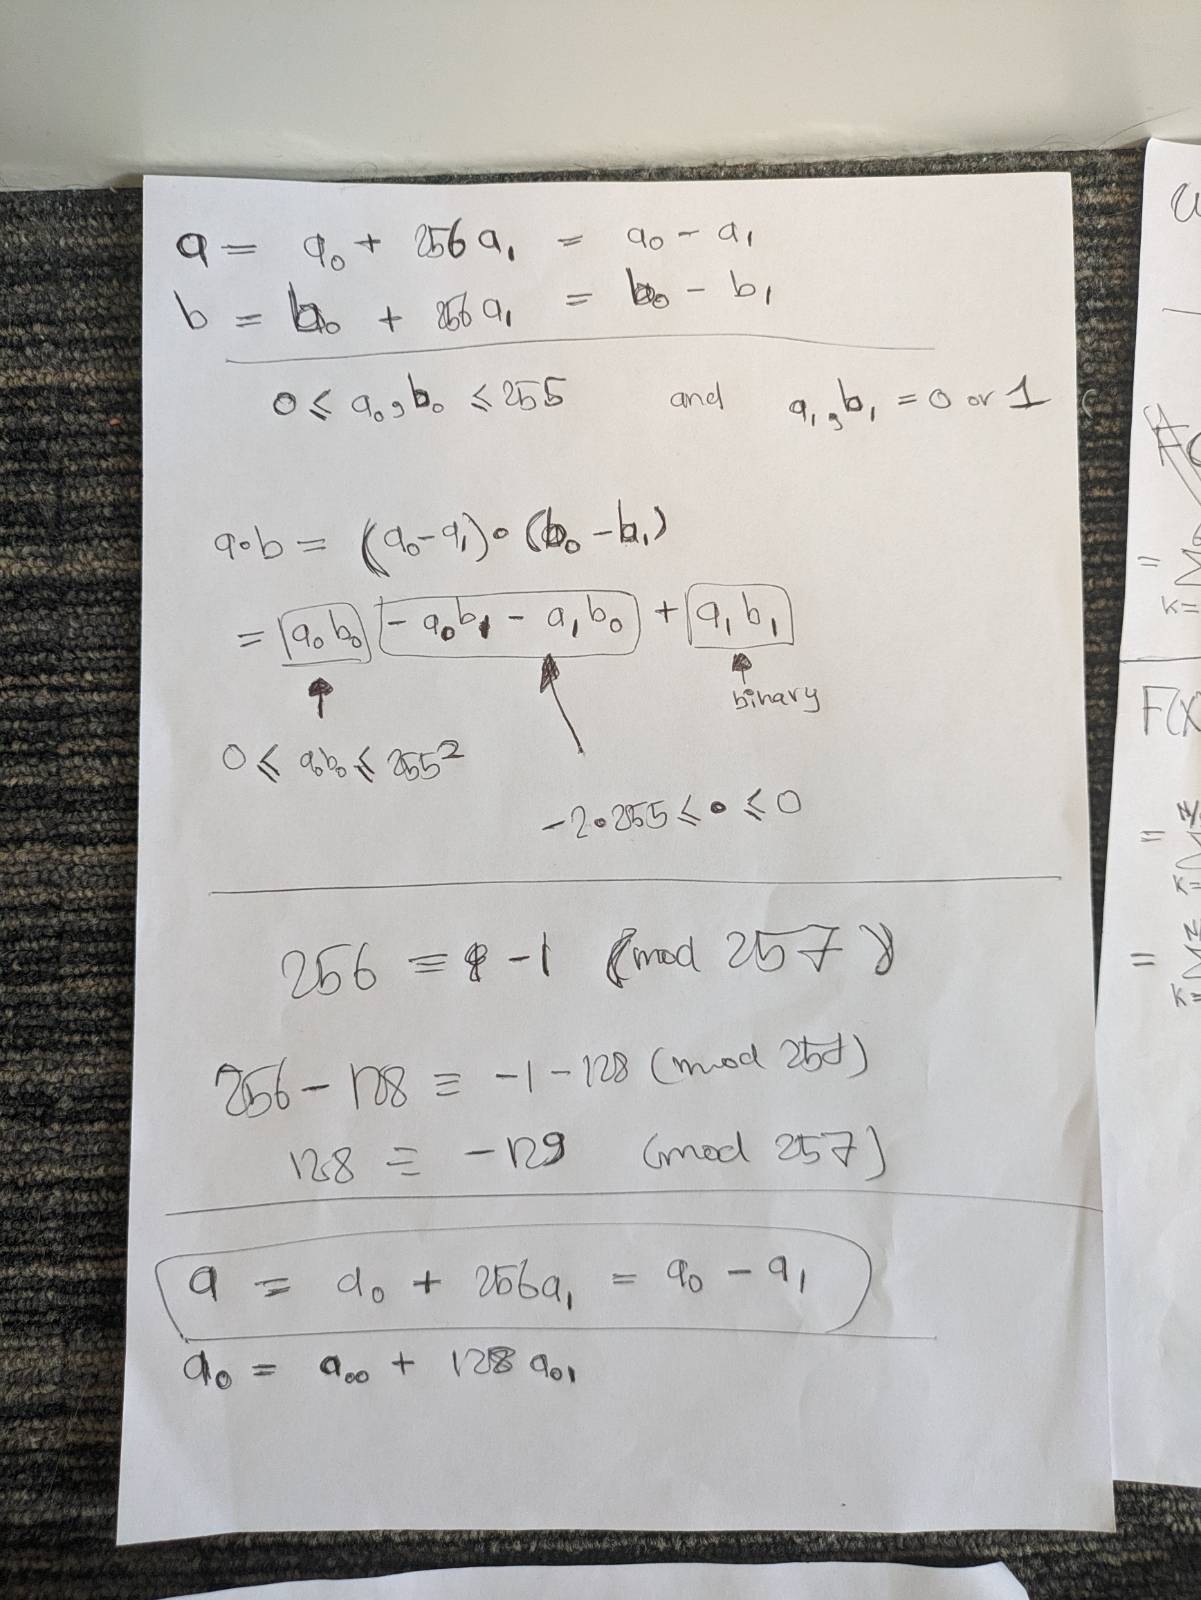 a = a₀ + 256 a₁ = a₀ - a₁
b = b₀ + 256 a₁ = b₀ - b₁
0 ≤ a₀, b₀ ≤ 255 and a₁, b₁ = 0 or 1
a·b = (a₀-a₁)·(b₀-b₁)
= a₀b₀ - a₀b₁ - a₁b₀ + a₁b₁
binary
0 ≤ a₀b₀ ≤ 255²
-2·255 ≤ · ≤ 0
256 ≡ -1 (mod 257)
256 - 128 ≡ -1 - 128 (mod 257)
128 ≡ -129 (mod 257)
a = a₀ + 256a₁ = a₀ - a₁
a₀ = a₀₀ + 128 a₀₁
F(x
=
K=
=
K=
=
K=